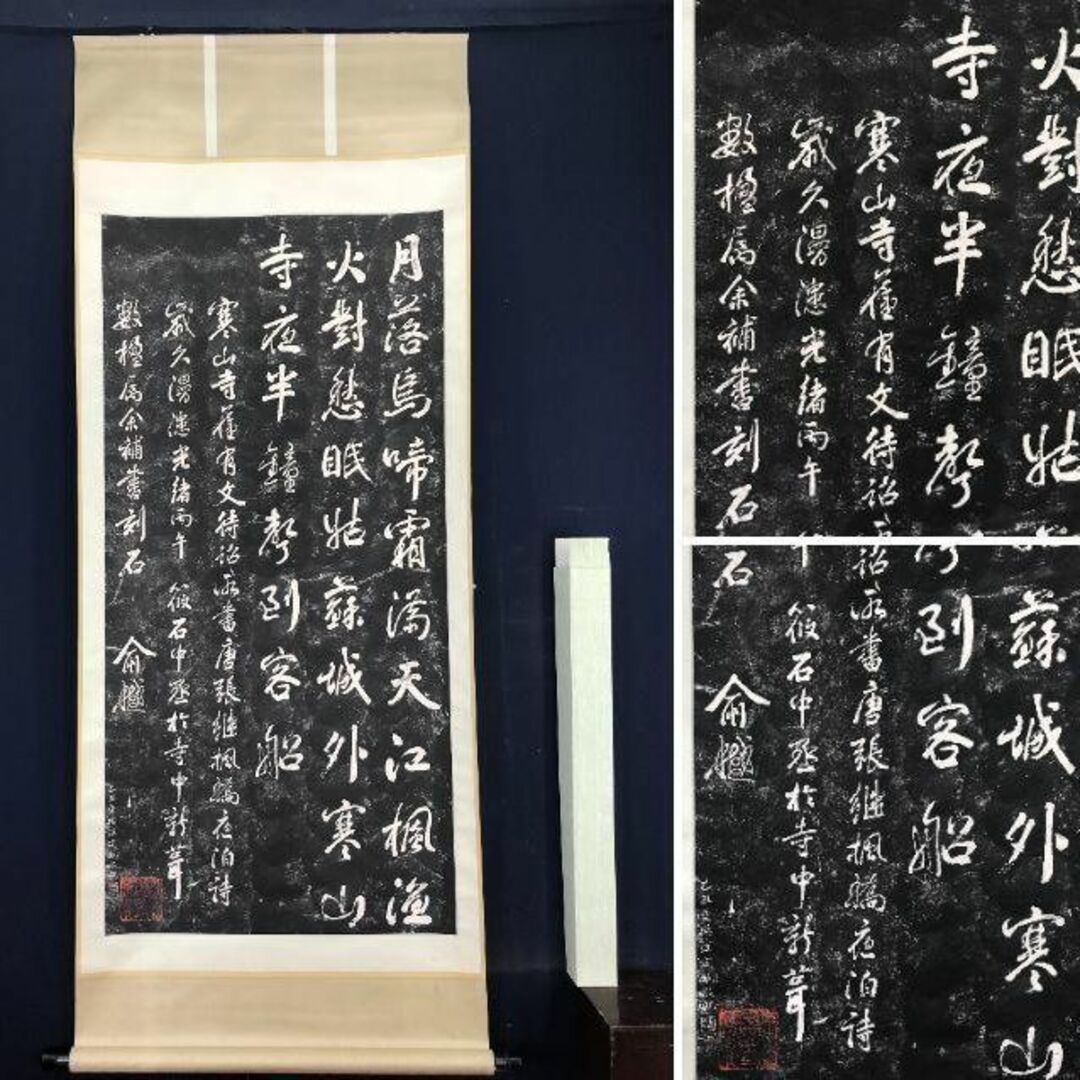 月落烏啼霜滿天江楓漁
火對愁眠姑蘇城外寒山
寺夜半鐘聲到客船
寒山寺舊有文待詔所書唐張繼楓橋夜泊詩
歳久漫漶光緒丙午筱石中丞於寺中新葺
數楹屬余補書刻石
俞樾
火對愁眠姑
寺夜半鐘聲
寒山寺舊有文待詔
歳久漫漶光緒丙午
數楹屬余補書刻石
蘇城外寒山
到客船
所書唐張繼楓橋夜泊詩
筱石中丞於寺中新葺
石
俞樾